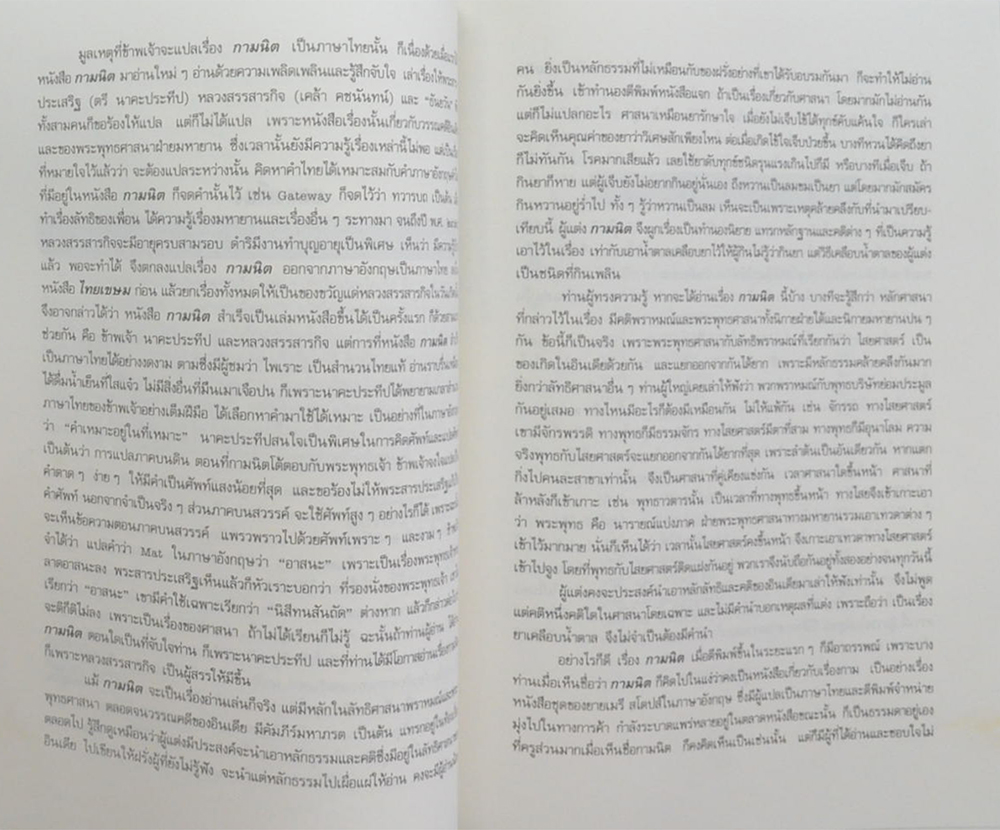 มูลเหตุที่ข้าพเจ้าจะแปลเรื่อง กามนิต เป็นภาษาไทยนั้น ก็เนื่องด้วยเมื่อ
หนังสือ กามนิต มาอ่านใหม่ ๆ อ่านด้วยความเพลิดเพลินและรู้สึกจับใจ เล่าเรื่องให้
ประเสริฐ (ตรี นาคะประทีป) หลวงสรรสารกิจ (เคล้า คชนันทน์) และ
ทั้งสามคนก็ขอร้องให้แปล แต่ก็ไม่ได้แปล เพราะหนังสือเรื่องนั้นเกี่ยวกับวรรณคดี
และของพระพุทธศาสนาฝ่ายมหายาน ซึ่งเวลานั้นยังมีความรู้เรื่องเหล่านี้ไม่พอ
ที่หมายใจไว้แล้วว่า จะต้องแปลระหว่างนั้น คิดหาคำไทยได้เหมาะสมกับคำภาษาอังกฤษ
ที่มีอยู่ในหนังสือ กามนิต ก็จดคำนั้นไว้ เช่น Gateway ก็จดไว้ว่า ทวารบถ เป็นต้น
ทำเรื่องลัทธิของเพื่อน ได้ความรู้เรื่องมหายานและเรื่องอื่น ๆ ระทางมา จนถึงปี พ.ศ.
หลวงสรรสารกิจจะมีอายุครบสามรอบ ดำริมีงานทำบุญอายุเป็นพิเศษ เห็นว่า
แล้ว พอจะทำได้ จึงตกลงแปลเรื่อง กามนิต ออกจากภาษาอังกฤษเป็นภาษาไทย
หนังสือ ไทยเขษม ก่อน แล้วยกเรื่องทั้งหมดให้เป็นของขวัญแด่หลวงสรรสารกิจใน
จึงอาจกล่าวได้ว่า หนังสือ กามนิต สำเร็จเป็นเล่มหนังสือขึ้นได้เป็นครั้งแรก ก็ด้วย
ช่วยกัน คือ ข้าพเจ้า นาคะประทีป และหลวงสรรสารกิจ แต่การที่หนังสือ กามนิต
เป็นภาษาไทยได้อย่างงดงาม ตามซึ่งมีผู้ชมว่า ไพเราะ เป็นสำนวนไทยแท้
ได้ดื่มน้ำเย็นที่ใสแจ๋ว ไม่มีสิ่งอื่นที่มึนเมาเจือปน ก็เพราะนาคะประทีปได้พยายาม
ภาษาไทยของข้าพเจ้าอย่างเต็มฝีมือ ได้เลือกหาคำมาใช้ได้เหมาะ เป็นอย่างที่ในภาษาอังกฤษ
ว่า “คำเหมาะอยู่ในที่เหมาะ” นาคะประทีปสนใจเป็นพิเศษในการคิดศัพท์และแปลศัพท์
เป็นต้นว่า การแปลภาคบนดิน ตอนที่กามนิตโต้ตอบกับพระพุทธเจ้า ข้าพเจ้าจงใจ
คำดาด ๆ ง่าย ๆ ให้มีคำเป็นศัพท์แสงน้อยที่สุด และขอร้องไม่ให้พระสารประเสริฐ
คำศัพท์ นอกจากจำเป็นจริง ๆ ส่วนภาคบนสวรรค์ จะใช้ศัพท์สูง ๆ อย่างไรก็ได้
จะเห็นข้อความตอนภาคบนสวรรค์ แพรวพราวไปด้วยศัพท์เพราะ ๆ และงาม ๆ
จำได้ว่า แปลคำว่า Mat ในภาษาอังกฤษว่า “อาสนะ” เพราะเป็นเรื่องพระพุทธเจ้า
ลาดอาสนะลง พระสารประเสริฐเห็นแล้วก็หัวเราะบอกว่า ที่รองนั่งของพระพุทธเจ้า
เรียกว่า “อาสนะ” เขามีคำใช้เฉพาะเรียกว่า “นิสีทนสันถัต” ต่างหาก แล้วก็กล่าว
จะติก็ติไม่ลง เพราะเป็นเรื่องของศาสนา ถ้าไม่ได้เรียนก็ไม่รู้ ฉะนั้นถ้าท่านผู้อ่าน
กามนิต ตอนใดเป็นที่จับใจท่าน ก็เพราะนาคะประทีป และที่ท่านได้มีโอกาสอ่านเรื่อง
ก็เพราะหลวงสรรสารกิจ เป็นผู้สรรให้มีขึ้น
แม้ กามนิต จะเป็นเรื่องอ่านเล่นก็จริง แต่มีหลักในลัทธิศาสนาพราหมณ์และ
พุทธศาสนา ตลอดจนวรรณคดีของอินเดีย มีคัมภีร์มหาภรต เป็นต้น แทรกอยู่ใน
ตลอดไป รู้สึกดูเหมือนว่าผู้แต่งมีประสงค์จะนำเอาหลักธรรมและคติซึ่งมีอยู่ในลัทธิศาสนา
อินเดีย ไปเขียนให้ฝรั่งผู้ที่ยังไม่รู้ฟัง จะนำแต่หลักธรรมไปเผื่อแผ่ให้อ่าน คงจะมีผู้อ่าน
คน ยิ่งเป็นหลักธรรมที่ไม่เหมือนกับของฝรั่งอย่างที่เขาได้รับอบรมกันมา ก็จะทำให้ไม่อ่าน
กันยิ่งขึ้น เข้าทำนองตีพิมพ์หนังสือแจก ถ้าเป็นเรื่องเกี่ยวกับศาสนา โดยมากมักไม่อ่านกัน
แต่ก็ไม่แปลกอะไร ศาสนาเหมือนยารักษาใจ เมื่อยังไม่เจ็บไข้ได้ทุกข์คับแค้นใจ ก็ใครเล่า
จะคิดเห็นคุณค่าของยาว่าวิเศษสักเพียงไหน ต่อเมื่อเกิดไข้ใจเจ็บป่วยขึ้น บางทีหวนได้คิดถึงยา
ก็ไม่ทันกัน โรคมากเสียแล้ว เลยใช้ยาดับทุกข์ชนิดรุนแรงเกินไปก็มี หรือบางทีเมื่อเจ็บ ถ้า
กินยาก็หาย แต่ผู้เจ็บยังไม่อยากกินอยู่นั่นเอง ถึงหวานเป็นลมขมเป็นยา แต่โดยมากมักสมัคร
กินหวานอยู่ร่ำไป ทั้ง ๆ รู้ว่าหวานเป็นลม เห็นจะเป็นเพราะเหตุคล้ายคลึงกับที่นำมาเปรียบ-
เทียบนี้ ผู้แต่ง กามนิต จึงผูกเรื่องเป็นทำนองนิยาย แทรกหลักฐานและคติต่าง ๆ ที่เป็นความรู้
เอาไว้ในเรื่อง เท่ากับเอาน้ำตาลเคลือบยาไว้ให้ผู้กินไม่รู้ว่ากินยา แต่วิธีเคลือบน้ำตาลของผู้แต่ง
เป็นชนิดที่กินเพลิน
ท่านผู้ทรงความรู้ หากจะได้อ่านเรื่อง กามนิต นี้บ้าง บางทีจะรู้สึกว่า หลักศาสนา
ที่กล่าวไว้ในเรื่อง มีคติพราหมณ์และพระพุทธศาสนาทั้งนิกายฝ่ายใต้และนิกายมหายานปน ๆ
กัน ข้อนี้ก็เป็นจริง เพราะพระพุทธศาสนากับลัทธิพราหมณ์ที่เรียกกันว่า ไสยศาสตร์ เป็น
ของเกิดในอินเดียด้วยกัน และแยกออกจากกันได้ยาก เพราะมีหลักธรรมคล้ายคลึงกันมาก
ยิ่งกว่าลัทธิศาสนาอื่น ๆ ท่านผู้ใหญ่เคยเล่าให้ฟังว่า พวกพราหมณ์กับพุทธบริษัทย่อมประมูล
กันอยู่เสมอ ทางไหนมีอะไรก็ต้องมีเหมือนกัน ไม่ให้แพ้กัน เช่น จักรรถ ทางไสยศาสตร์
เขามีจักรพรรดิ ทางพุทธก็มีธรรมจักร ทางไสยศาสตร์มีตาที่สาม ทางพุทธก็มีอุนาโลม ความ
จริงพุทธกับไสยศาสตร์จะแยกออกจากกันได้ยากที่สุด เพราะลำต้นเป็นอันเดียวกัน หากแตก
กิ่งไปคนละสาขาเท่านั้น จึงเป็นศาสนาที่คู่เคียงแข่งกัน เวลาศาสนาใดขึ้นหน้า ศาสนาที่
ล้าหลังก็เข้าเกาะ เช่น พุทธาวตารนั้น เป็นเวลาที่ทางพุทธขึ้นหน้า ทางไสยจึงเข้าเกาะเอา
ว่า พระพุทธ คือ นารายณ์แบ่งภาค ฝ่ายพระพุทธศาสนาทางมหายานรวมเอาเทวดาต่าง ๆ
เข้าไว้มากมาย นั่นก็เห็นได้ว่า เวลานั้นไสยศาสตร์คงขึ้นหน้า จึงเกาะเอาเทวดาทางไสยศาสตร์
เข้าไปจูง โดยที่พุทธกับไสยศาสตร์ติดแฝงกันอยู่ พวกเราจึงนับถือกันอยู่ทั้งสองอย่างจนทุกวันนี้
ผู้แต่งคงจะประสงค์นำเอาหลักลัทธิและคติของอินเดียมาเล่าให้ฟังเท่านั้น จึงไม่พูด
แต่คติหนึ่งคติใดในศาสนาโดยเฉพาะ และไม่มีคำนำบอกเหตุผลที่แต่ง เพราะถือว่า เป็นเรื่อง
ยาเคลือบน้ำตาล จึงไม่จำเป็นต้องมีคำนำ
อย่างไรก็ดี เรื่อง กามนิต เมื่อตีพิมพ์ขึ้นในระยะแรก ๆ ก็มีอาถรรพณ์ เพราะบาง
ท่านเมื่อเห็นชื่อว่า กามนิต ก็คิดไปในแง่ว่าคงเป็นหนังสือเกี่ยวกับเรื่องกาม เป็นอย่างเรื่อง
หนังสือชุดของยายเมรี สโตปส์ในภาษาอังกฤษ ซึ่งมีผู้แปลเป็นภาษาไทยและตีพิมพ์จำหน่าย
มุ่งไปในทางการค้า กำลังระบาดแพร่หลายอยู่ในตลาดหนังสือขณะนั้น ก็เป็นธรรมดาอยู่เอง
ที่ครูส่วนมากเมื่อเห็นชื่อกามนิต ก็คงคิดเห็นเป็นเช่นนั้น แต่ก็มีผู้ที่ได้อ่านและชอบใจไม่